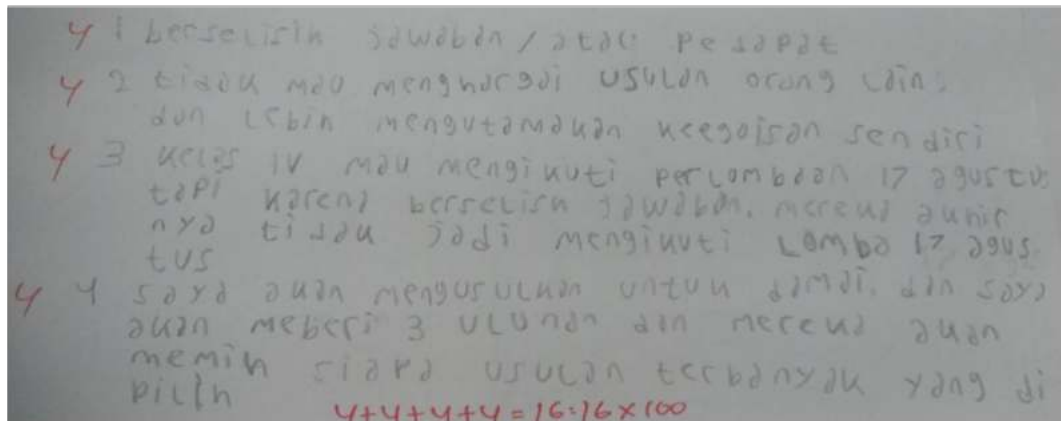 4 1 berselisih jawaban / atau pesapat
4 2 tidak mau menghargai usulan orang lain,
dan lebih mengutamakan keegoisan sendiri
4 3 kelas IV mau mengikuti perlombaan 17 agustus
tapi karena berselisih jawaban. mereka auhir
nya tidak jadi mengikuti Lomba 17 agus
tus
4 4 saya akan mengusulkan untuk damai. dan saya
akan meberi 3 ulunan dan mereka akan
memih siapa usulan terbanyak yang di
pilih
4+4+4+4=16:16×100